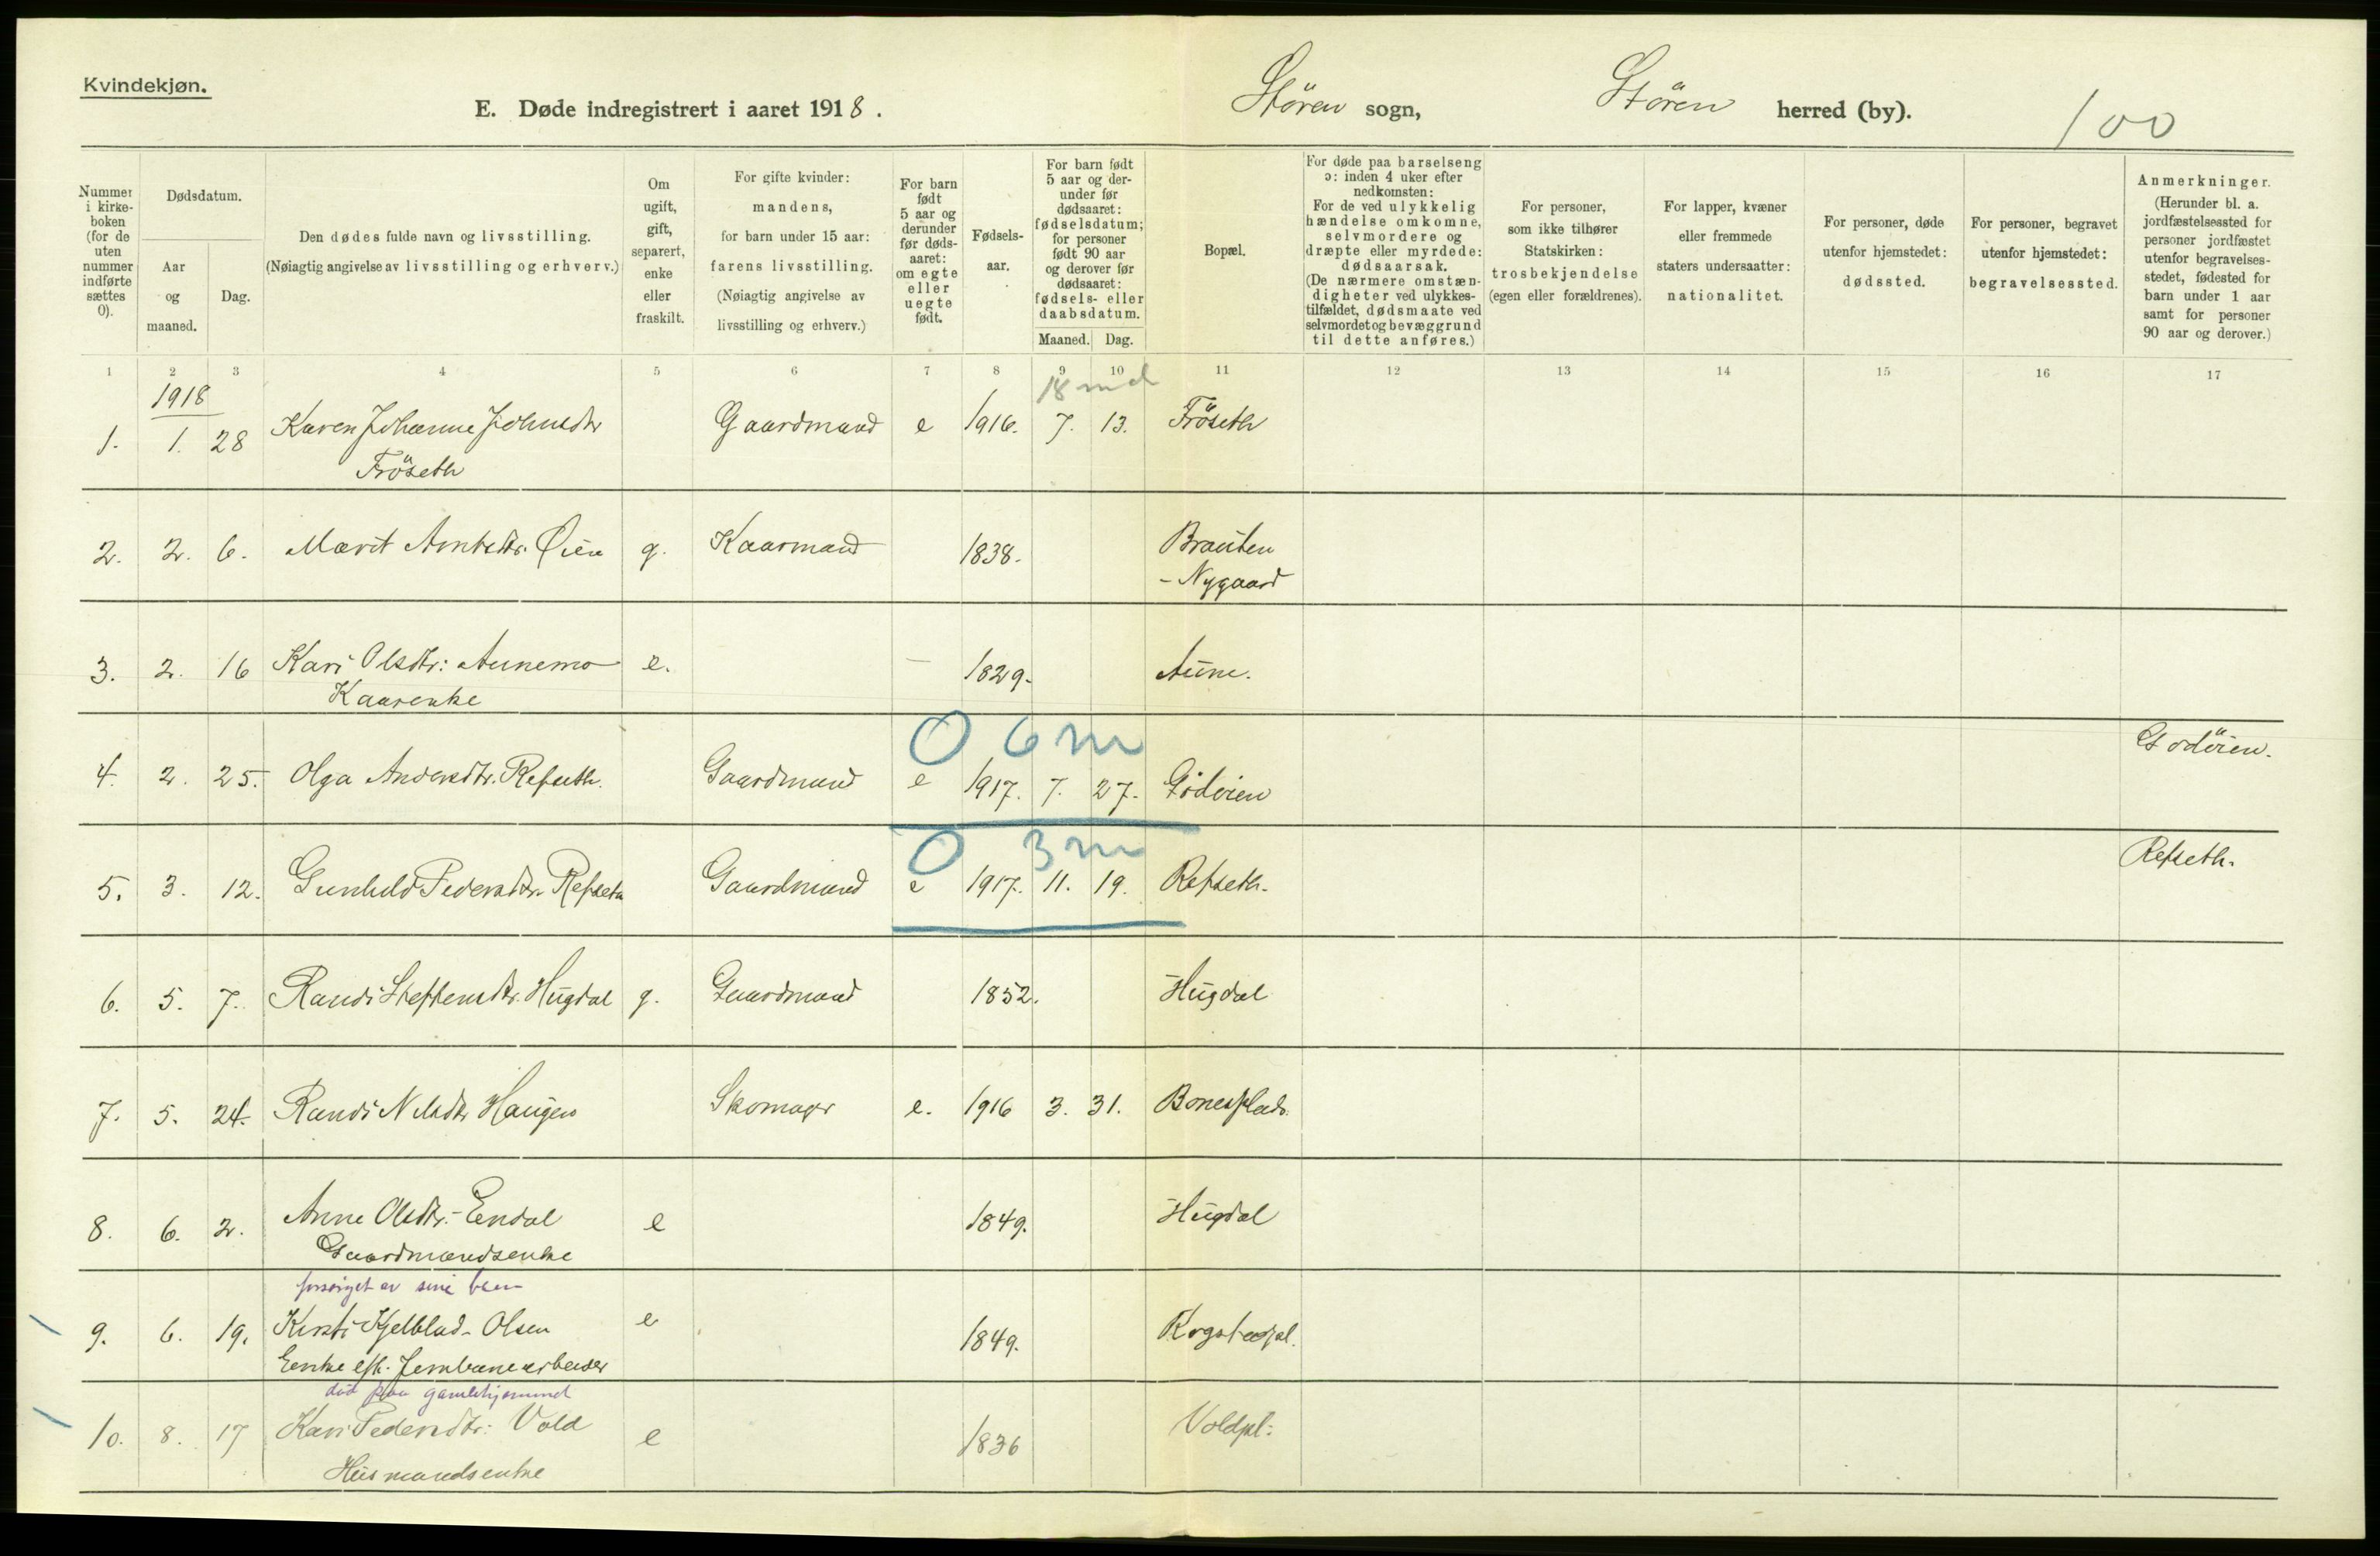 Kvindekjøn.
E. Døde indregistrert i aaret 1918.
Støren sogn,
Støren herred (by).
100
Nummer i kirke-boken (for de uten nummer indførte sættes 0).
Dødsdatum.
Aar og maaned.
Dag.
Den dødes fulde navn og livsstilling.
(Nøiagtig angivelse av livsstilling og erhverv.)
Om ugift, gift, separert, enke eller fraskilt.
For gifte kvinder: mandens, for barn under 15 aar: farens livsstilling. (Nøiagtig angivelse av livsstilling og erhverv.)
For barn født 5 aar og derunder før døds-aaret: om egte eller uegte født.
Fødsels-aar.
For barn født 5 aar og der-under før dødsaaret: fødselsdatum; for personer født 90 aar og derover før dødsaaret: fødsels- eller daabsdatum.
Maaned. Dag.
Bopæl.
For døde paa barselseng ɔ: inden 4 uker efter nedkomsten: For de ved ulykkelig hændelse omkomne, selvmordere og dræpte eller myrdede: dødsaarsak. (De nærmere omstæn-digheter ved ulykkes-tilfældet, dødsmaate ved selvmordet og bevæggrund til dette anføres.)
For personer, som ikke tilhører Statskirken: trosbekjendelse (egen eller forældrenes).
For lapper, kvæner eller fremmede staters undersaatter: nationalitet.
For personer, døde utenfor hjemstedet: dødssted.
For personer, begravet utenfor hjemstedet: begravelsessted.
Anmerkninger. (Herunder bl. a. jordfæstelsessted for personer jordfæstet utenfor begravelses-stedet, fødested for barn under 1 aar samt for personer 90 aar og derover.)
1 2 3 4 5 6 7 8 9 10 11 12 13 14 15 16 17
1918
18 md
1. 1. 28 Karen Johanne Johnsdtr Gaardmand e 1916. 7. 13. Fröseth
Fröseth
2. 2. 6. Marit Arntsdtr. Øien g. Kaarmand 1838. Brauten
- Nygaard
3. 2. 16 Kari Olsdtr: Aunemo e. — 1829. Aune.
Kaarenke
0 6 m
4. 2. 25. Olga Andersdtr. Refseth. Gaardmand e 1917. 7. 27. Godøien Godöien.
0 3 m
5. 3. 12. Gunhild Pedersdtr. Refseth Gaardmand e 1917. 11. 19. Refseth. Refseth.
6. 5. 7. Randi Steffensdtr. Hugdal g. Gaardmand 1852. Hugdal
7. 5. 24. Randi Nilsdtr Haugen Skomager e. 1916 3. 31. Bonesplads.
8. 6. 2. Anne Olsdtr. Endal e 1849. Hugdal
Gaardmandsenke
forsörget av sine barn
9. 6. 19. Kirsti Kjelblad-Olsen e 1849. Rogstadpl.
Enke eft. Jernbanearbeider
död paa gamlehjemmet
10. 8. 17 Kari Pedersdtr: Vold e 1836 Voldpl:
Husmandsenke